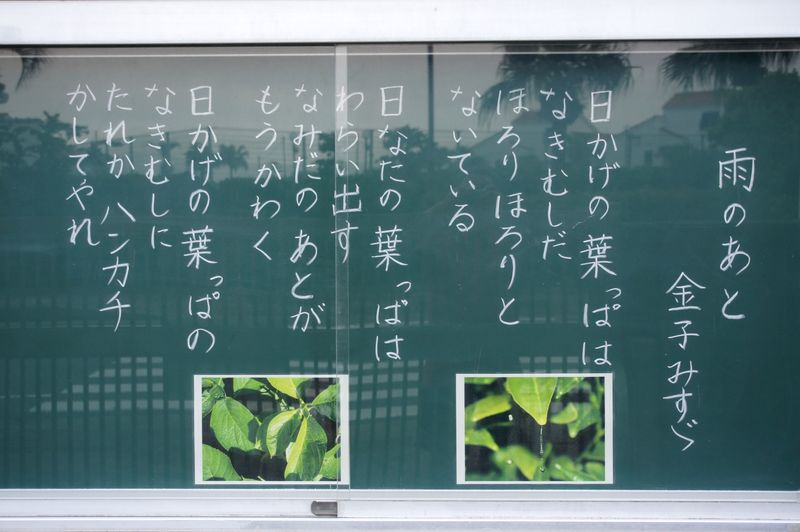 雨のあと
金子みすゞ
日かげの葉っぱは
なきむしだ
ほろりほろりと
ないている
日なたの葉っぱは
わらい出す
なみだのあとが
もうかわく
日かげの葉っぱの
なきむしに
たれかハンカチ
かしてやれ